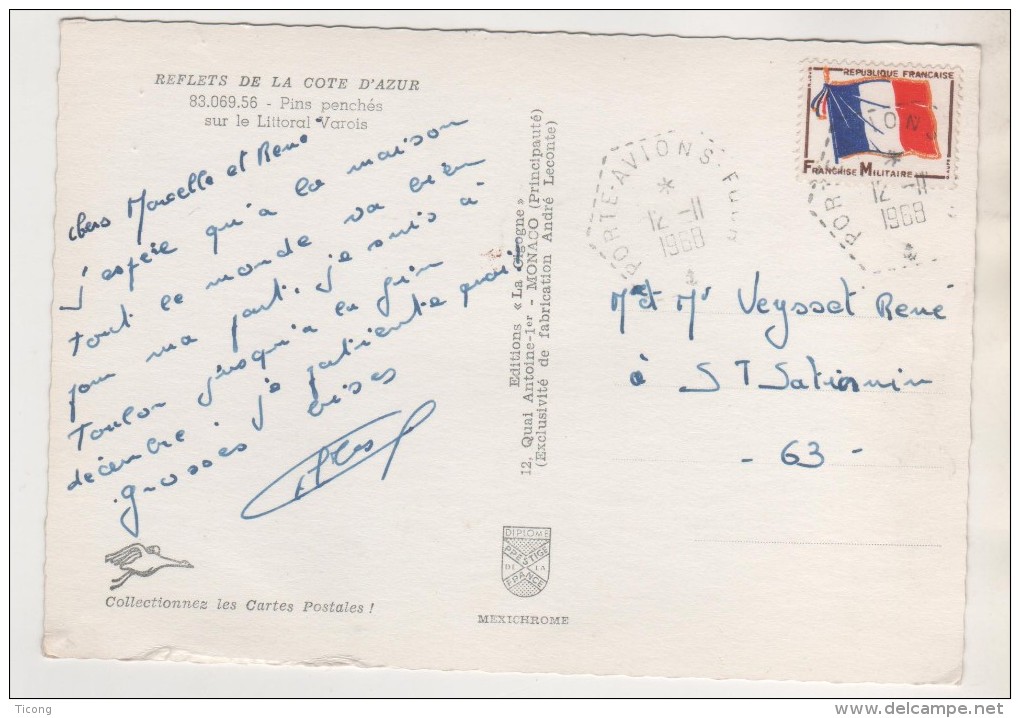 REFLETS DE LA COTE D'AZUR
83.069.56 - Pins penchés
sur le Littoral Varois
chers Marcelle et René
J'espère qu'à la maison
tout le monde va bien
pour ma part, je suis à
Toulon jusqu'à la fin
décembre. je patiente
grosses bises
Collectionnez les Cartes Postales !
Editions « La Cigogne »
12, Quai Antoine-1er - MONACO (Principauté)
(Exclusivité de fabrication André Leconte)
DIPLOME
PRESTIGE
DE LA
FRANCE
MEXICHROME
PORTE-AVIONS
12 -11
1968
REPUBLIQUE FRANCAISE
FRANCHISE MILITAIRE
POR IONS
12 -11
1968
Me et Mr Veysset René
à ST Saturnin
- 63 -
Ticong
www.delcampe.net